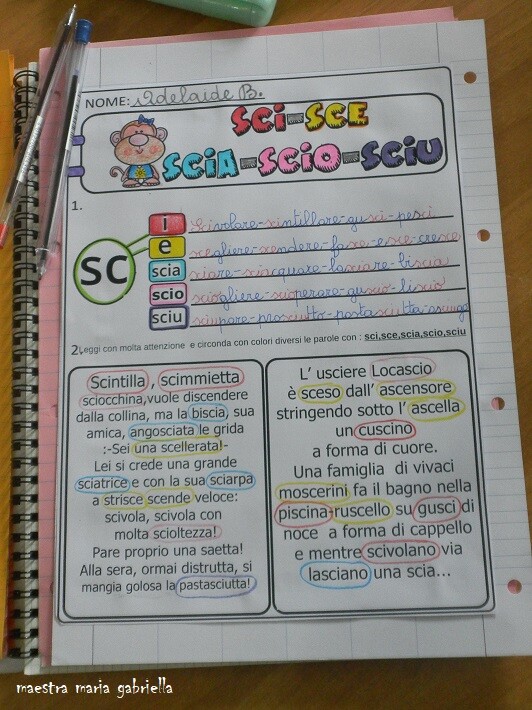 NOME: Adelaide B.
SCI-SCE
SCIA-SCIO-SCIU
1.
SC
i scivolare-scintillare-gusci-pesci
e scegliere-scendere-fasce-esce-cresce
scia sciare-sciacquare-lasciare-biscia
scio sciogliere-scioperare-guscio-liscio
sciu sciupare-prosciutto-pastasciutta-asciuga
2. Leggi con molta attenzione e circonda con colori diversi le parole con : sci,sce,scia,scio,sciu
Scintilla , scimmietta
sciocchina,vuole discendere
dalla collina, ma la biscia, sua
amica, angosciata le grida
:-Sei una scellerata!-
Lei si crede una grande
sciatrice e con la sua sciarpa
a strisce scende veloce:
scivola, scivola con
molta scioltezza!
Pare proprio una saetta!
Alla sera, ormai distrutta, si
mangia golosa la pastasciutta!
L' usciere Locascio
è sceso dall' ascensore
stringendo sotto l' ascella
un cuscino
a forma di cuore.
Una famiglia di vivaci
moscerini fa il bagno nella
piscina-ruscello su gusci di
noce a forma di cappello
e mentre scivolano via
lasciano una scia...
maestra maria gabriella